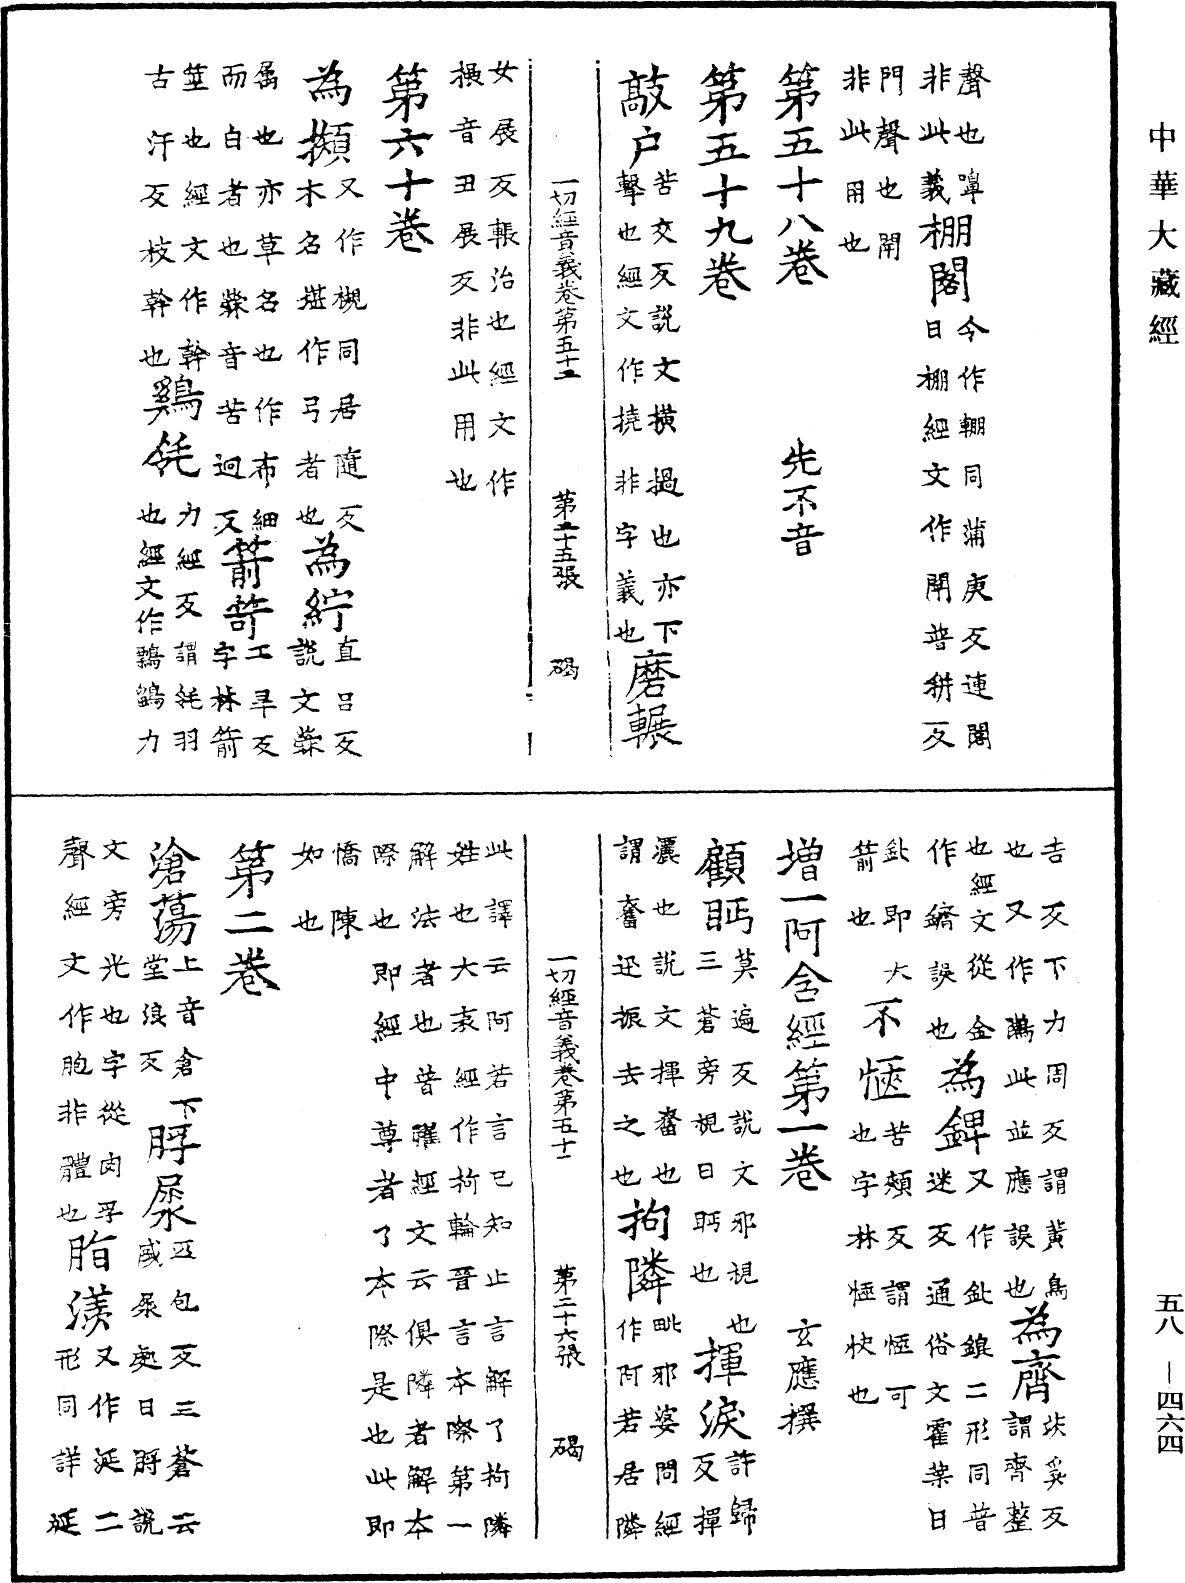 中華大藏經
聲也嘷
非此義棚閣今作輣同蒲庚反連閣
曰棚經文作閛普耕反
門聲也閛
非此用也
第五十八卷　先不音
第五十九卷
敲户苦交反說文橫撾也亦下
擊也經文作撓非字義也磨輾
一切經音義卷第五十二　第二十五張　碣
女展反輾治也經文作
搌音丑展反非此用也
第六十卷
為㩜又作槻同居隨反
木名堪作弓者也為紵直呂反
說文䔛
屬也亦草名也作布細
而白者也䔛音苦迥反箭笴工旱反
字林箭
莖也經文作幹
古汗反枝幹也鷄毦力經反謂毦羽
也經文作鷅鶹力
吉反下力周反謂黃鳥
也又作鷅此並應誤也為齊㳄奚反
謂齊整
也經文從金
作鑇誤也為錍又作鈚鎞二形同普
迷反通俗文霍葉曰
鈚即大
箭也不愜苦頰反謂愜可
也字林愜快也
增一阿含經第一卷　玄應撰
顧眄莫遍反說文邪視也
三蒼旁視曰眄也揮淚許歸
反揮
灑也說文揮奮也
謂奮迅振去之也拘隣毗邪婆問經
作阿若居隣
此譯云阿若言已知止言解了拘隣
姓也大哀經作拘輪晉言本際第一
解法者也普曜經文云俱隣者解本
際也即經中尊者了本際是也此即
憍陳
如也
一切經音義卷第五十二　第二十六張　碣
第二卷
滄蕩上音倉下
堂浪反脬㞙匹包反三蒼云
盛㞙處曰脬說
文旁光也字從肉孚
聲經文作胞非體也脂㳄又作㳄二
形同詳延
五八—四六四